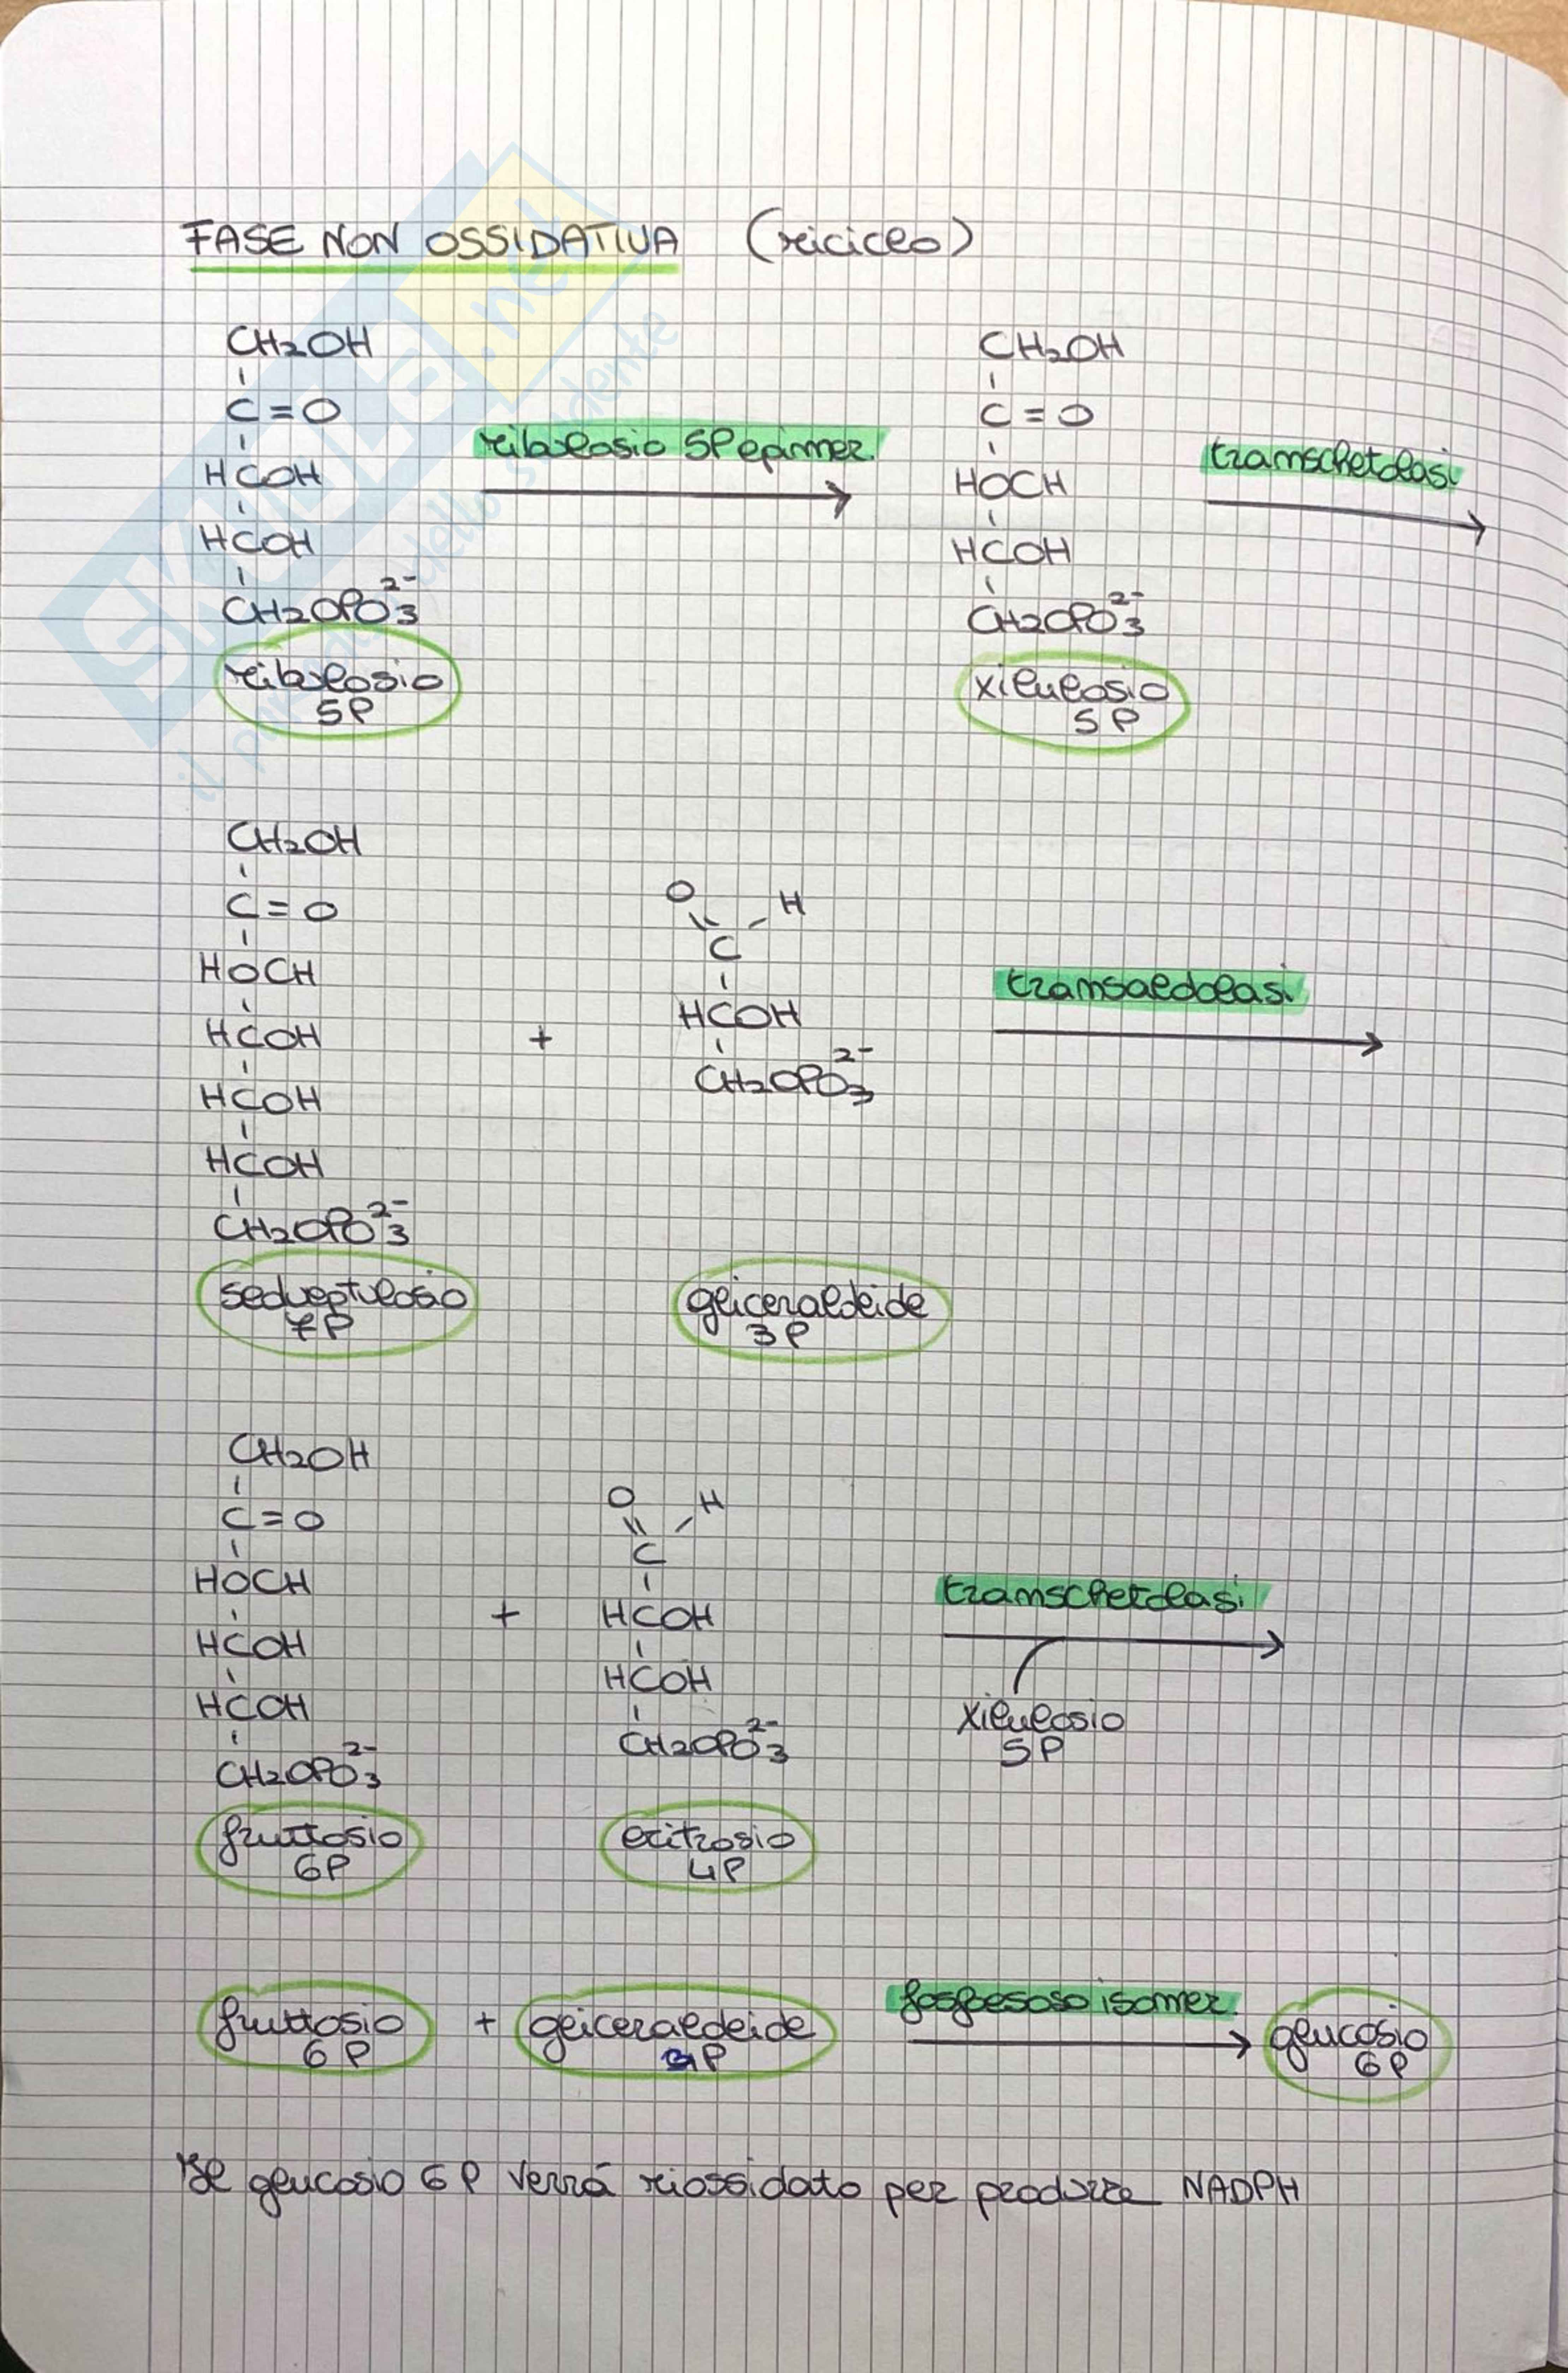 FASE NON OSSIDATIVA (riciclo)
CH2OH
C=O
HCOH
HCOH
CH2OPO3 2-
ribulosio
5P
ribulosio 5P epimer.
CH2OH
C=O
HOCH
HCOH
CH2OPO3 2-
xilulosio
5P
transchetolasi
CH2OH
C=O
HOCH
HCOH
HCOH
HCOH
CH2OPO3 2-
sedueptulosio
7P
+
O H
C
HCOH
CH2OPO3 2-
gliceraldeide
3P
transaldolasi
CH2OH
C=O
HOCH
HCOH
HCOH
CH2OPO3 2-
fruttosio
6P
+
O H
C
HCOH
HCOH
CH2OPO3 2-
eritrosio
4P
transchetolasi
xilulosio
5P
fruttosio
6P
+
gliceraldeide
3P
fosfoesoso isomer.
glucosio
6P
Il glucosio 6P verrà riossidato per produrre NADPH
SKUOLA.net
il paradiso dello studente